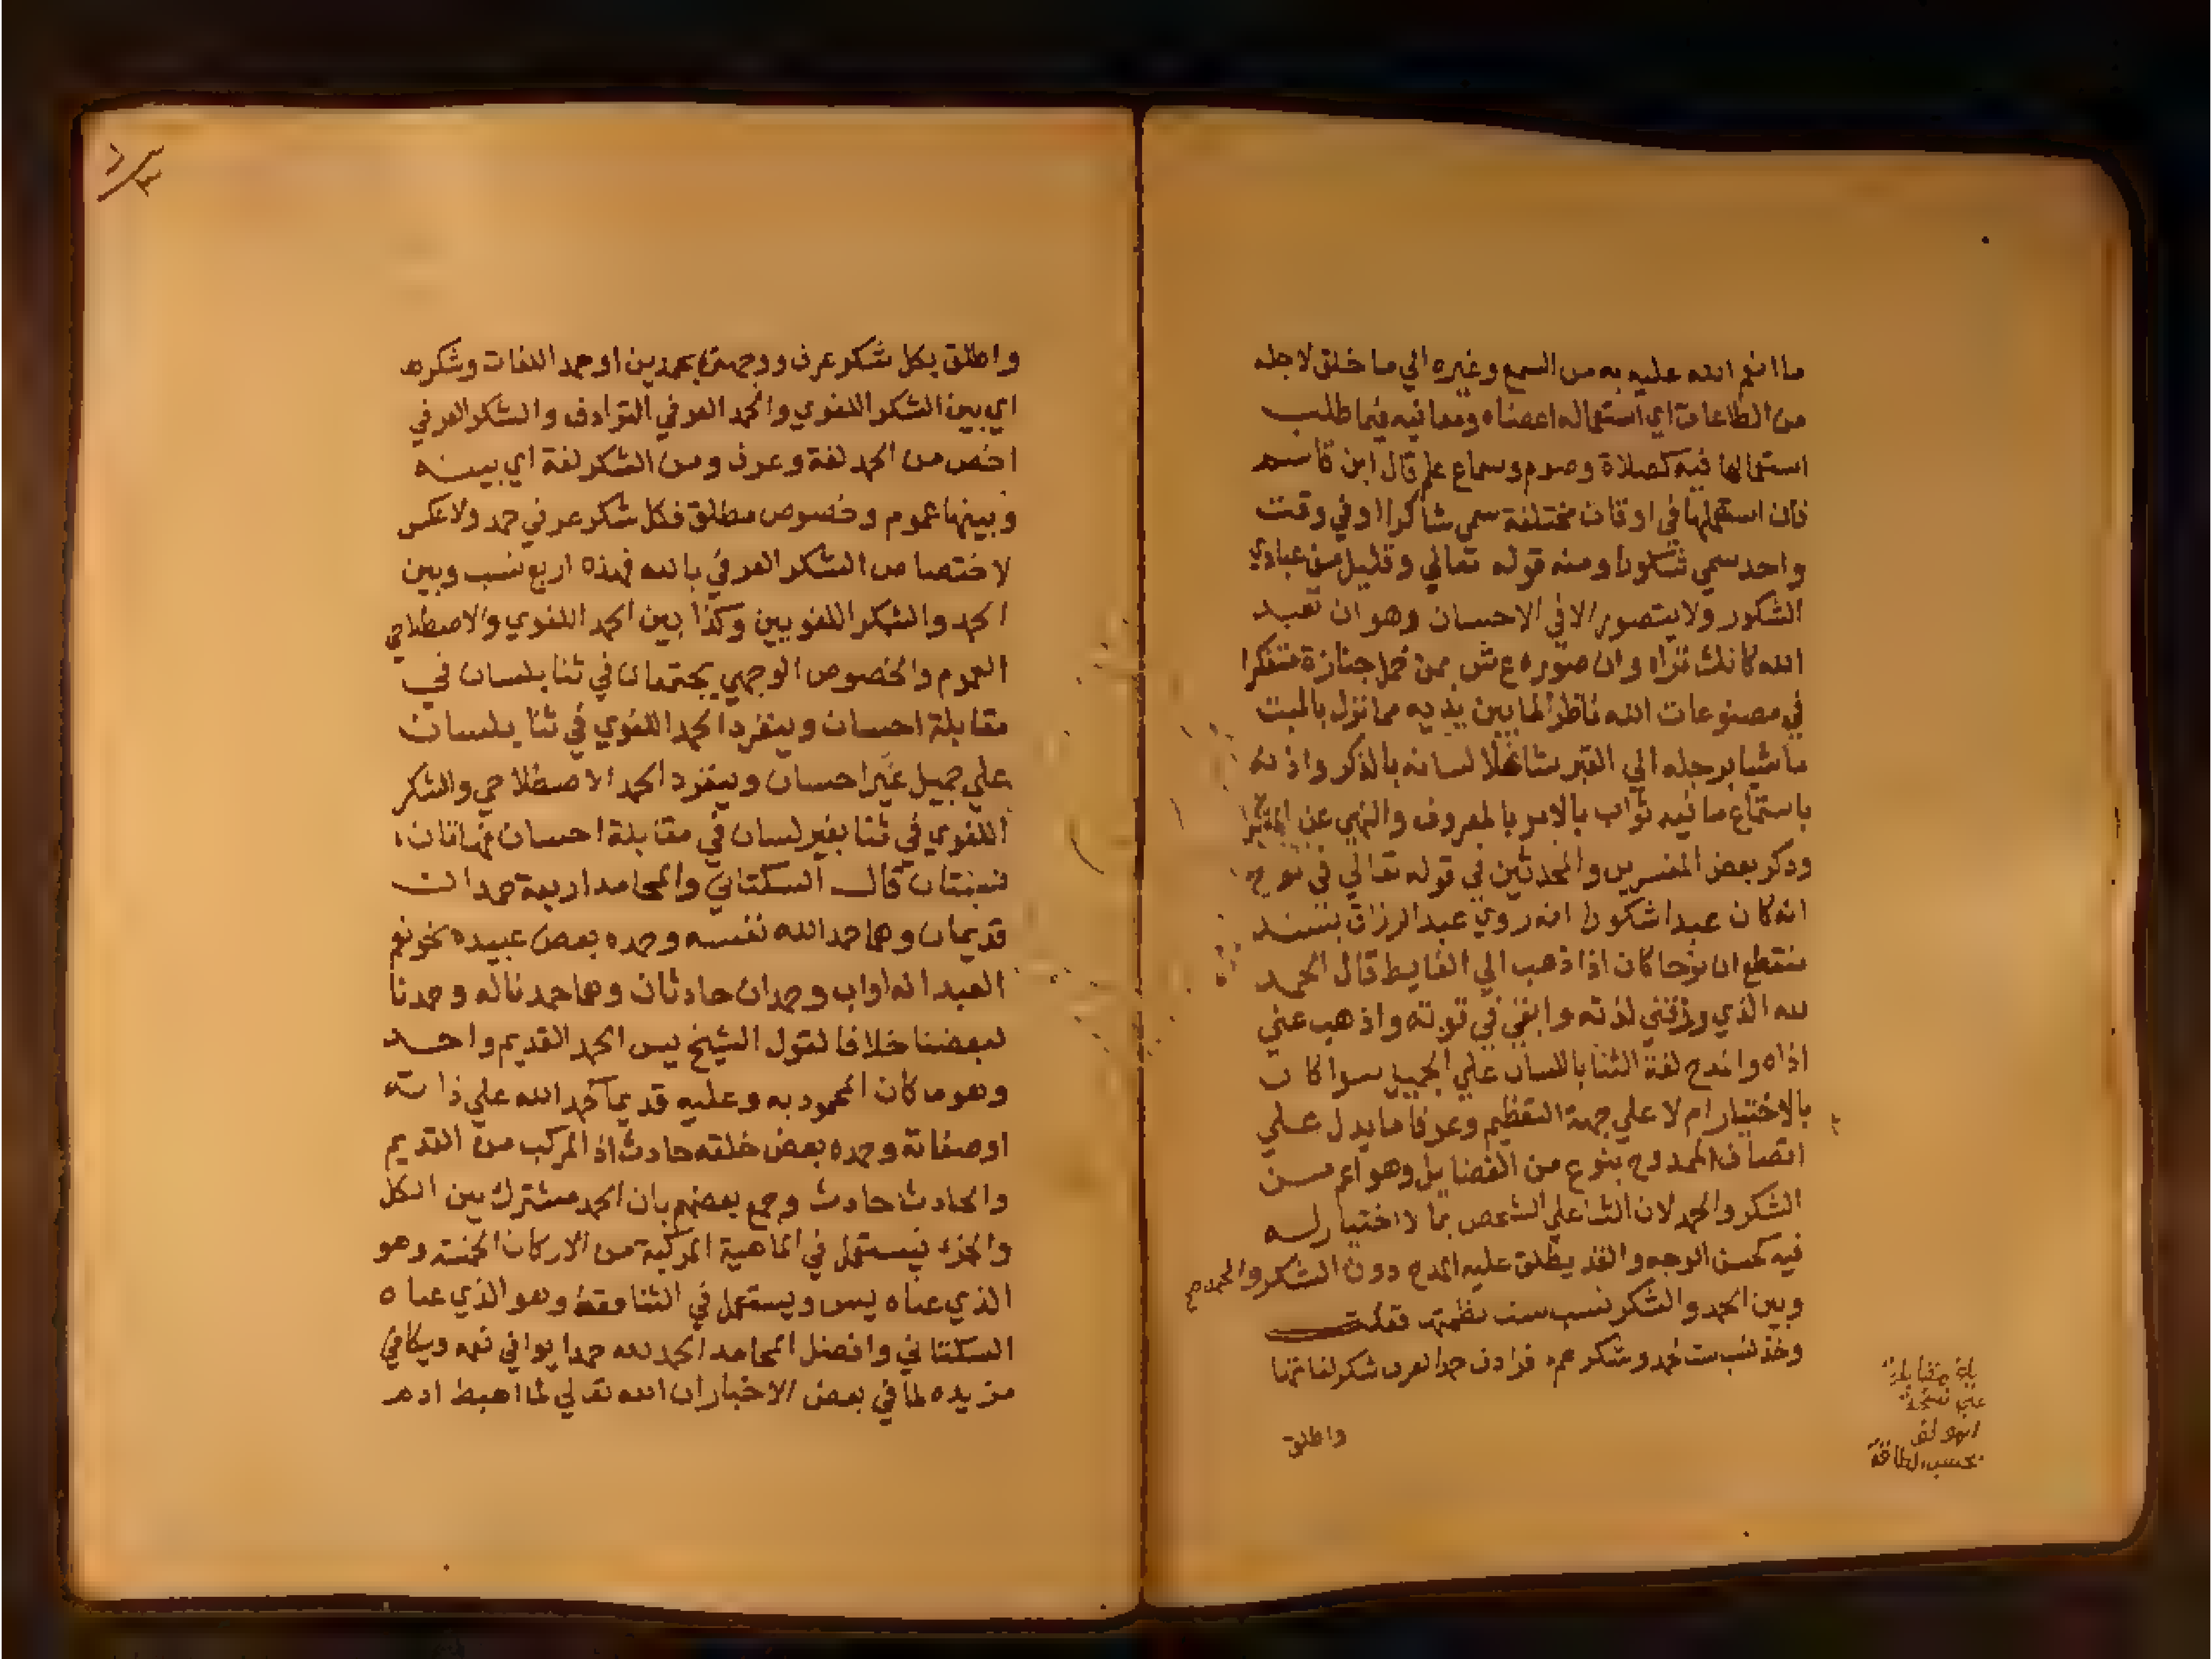 ما انعم الله عليه به من السمع وغيره الي ما خلق لاجله
من الطاعات اي استعماله اعضاه ومعانيه فيما طلب
استعمالها فيه كصلاة وصوم وسماع علم قال ابن قاسم
فان استعملها في اوقات مختلفة سمي شاكرا او في وقت
واحد سمي شكورا ومنه قوله تعالي وقليل من عبادي
الشكور ولا يتصور الا في الاحسان وهو ان تعبد
الله كانك تراه وان صوره ع ش بمن حمل جنازة متفكرا
في مصنوعات الله ناظرا لما بين يديه مما نزل بالميت
ماشيا برجله الي القبر شاغلا لسانه بالذكر واذنه
باستماع ما فيه ثواب بالامر بالمعروف والنهي عن المنكر
وذكر بعض المفسرين والمحدثين في قوله تعالي في نوح
انه كان عبدا شكورا انه روي عبد الرزاق بسند
منقطع ان نوحا كان اذا ذهب الي الغايط قال الحمد
لله الذي رزقني لذته وابقي في قوته واذهب عني
اذاه والمدح لغة الثنا باللسان علي الجميل سوا كان
بالاختيار ام لا علي جهة التعظيم وعرفا ما يدل علي
اتصاف الممدوح بنوع من الفضايل وهو اعم من
الشكر والحمد لان الثنا علي الشخص بما لا اختيار له
فيه كحسن الوجه والقد يطلق عليه المدح دون الشكر والحمد صح
وبين الحمد والشكر نسب ست نظمتها فقلت
وخذ نسب ست لحمد وشكرهم فرادف حمدا لعرف شكر لغا تمنا
واطلق
بلغ مقابلة
علي نسخة
المولف
بحسب الطاقة
واطلق بكل شكر عرف ووجهن بحمدين او حمد اللغات وشكره
اي بين الشكر اللغوي والحمد العرفي الترادف والشكر العرفي
اخص من الحمد لغة وعرف ومن الشكر لغة اي بينه
وبينها عموم وخصوص مطلق فكل شكر عرفي حمد ولا عكس
لاختصاص الشكر العرفي بالله فهذه اربع نسب وبين
الحمد والشكر اللغويين وكذا بين الحمد اللغوي والاصطلاحي
العموم والخصوص الوجهي يجتمعان في ثنا بلسان في
مقابلة احسان وينفرد الحمد اللغوي في ثنا بلسان
علي جميل غير احسان وينفرد الحمد الاصطلاحي والشكر
اللغوي في ثنا بغير لسان في مقابلة احسان فهاتان
نسبتان قال السكتاني والمحامد اربعة حمدان
قديمان وهما حمد الله نفسه وحمده بعض عبيده نحو نعم
العبد انه اواب وحمدان حادثان وهما حمدنا له وحمدنا
لبعضنا خلافا لقول الشيخ يس الحمد القديم واحد
وهو ما كان المحمود به وعليه قديما كحمد الله علي ذاته
او صفاته وحمده بعض خلقه حادث اذ المركب من القديم
والحادث حادث وجمع بعضهم بان الحمد مشترك بين الكل
والجزء فيستعمل في الماهية المركبة من الاركان الخمسة وهو
الذي عناه يس ويستعمل في الثنا فقط وهو الذي عناه
السكتاني وافضل المحامد الحمد لله حمدا يوافي نعمه ويكافي
مزيده لما في بعض الاخبار ان الله تعالي لما اهبط ادم